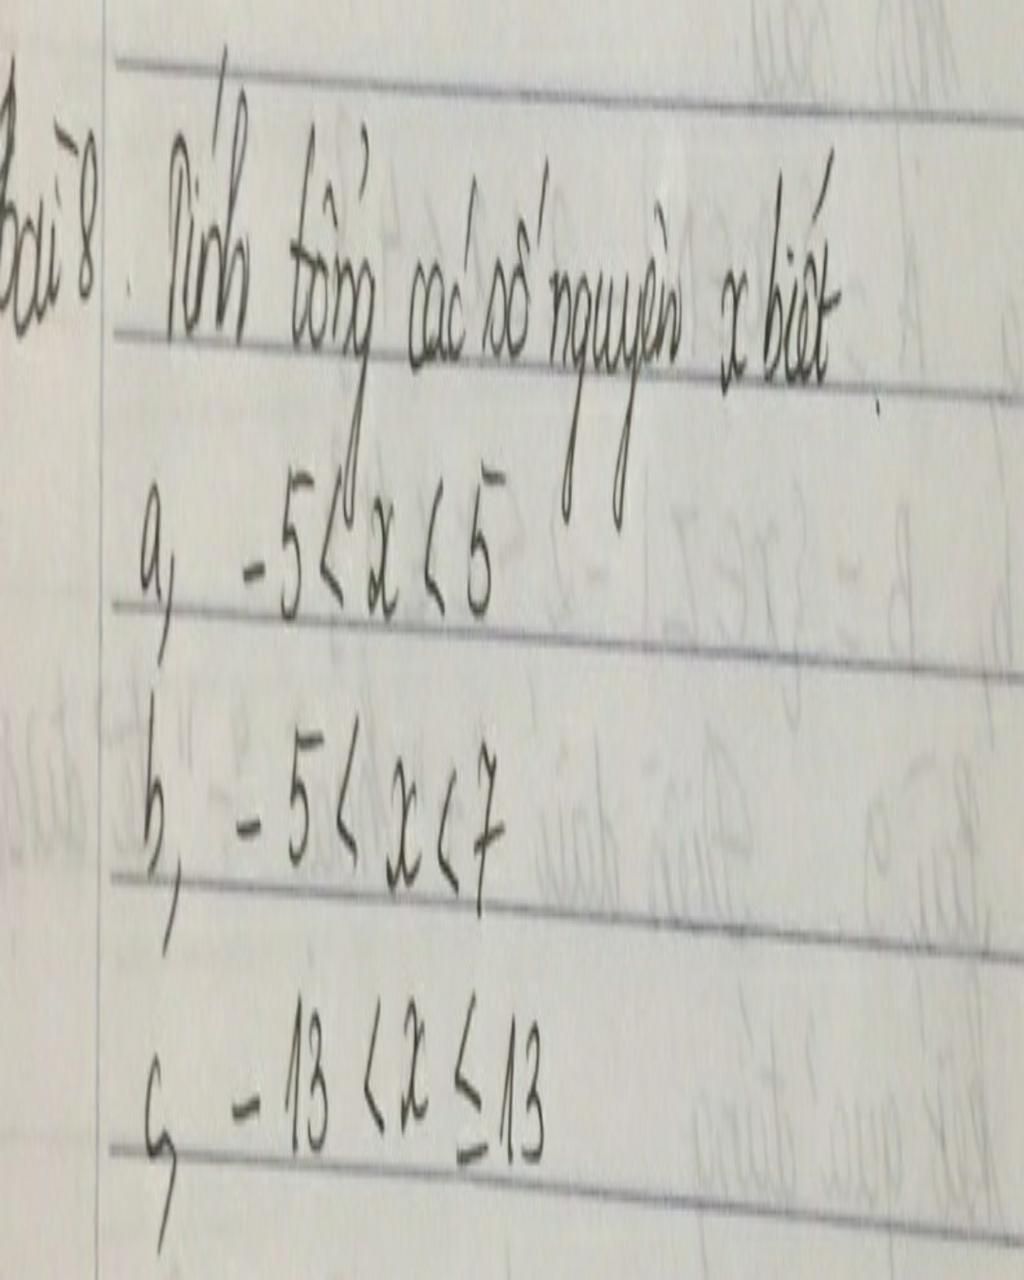 bài 8. Tính tổng các số nguyên x biết
a, - 5 < x < 5
b, - 5 < x < 7
c, - 13 < x ≤ 13